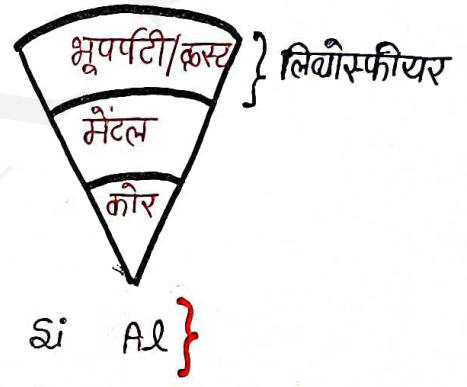 भूपर्पटी/क्रस्ट } लिथोस्फीयर
मेंटल
कोर
Si Al }